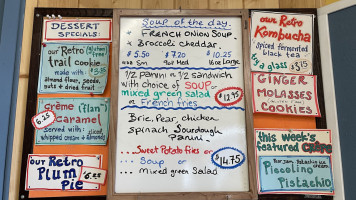 DESSERT
SPECIALS
our Retro
trail cookie
made with:
almonds, seed,
oats & dried fruit
$3.25
Crème "flan"
Caramel
6.25
served with:
whipped cream &
Almonds
our Retro
Plum
Pie
6.25
Soup of the day.
* FRENCH ONION SOUP.
* Broccoli cheddar.
$5.50 $7.20 $10.25
½ panini or ½ sandwich
with choice of SOUP or
mixed green salad
or French fries
$12.95
Brie, Pear, chicken
Spinach Sourdough
Panini.
... Sweet Potato fries or
... Soup or
... mixed green Salad
$14.75
our Retro
Kombucha
spiced fermented
black tea
by a glass
GINGER
MOLASSES
COOKIES
this week's
featured
Piccolino
Pistachio